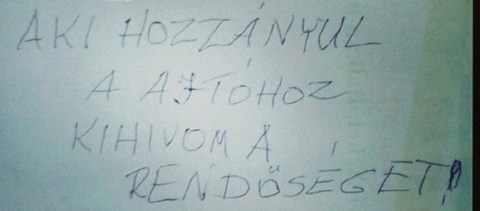 AKI HOZZÁNYUL
A AJTÓHOZ
KIHIVOM A
RENDŐSÉGET!